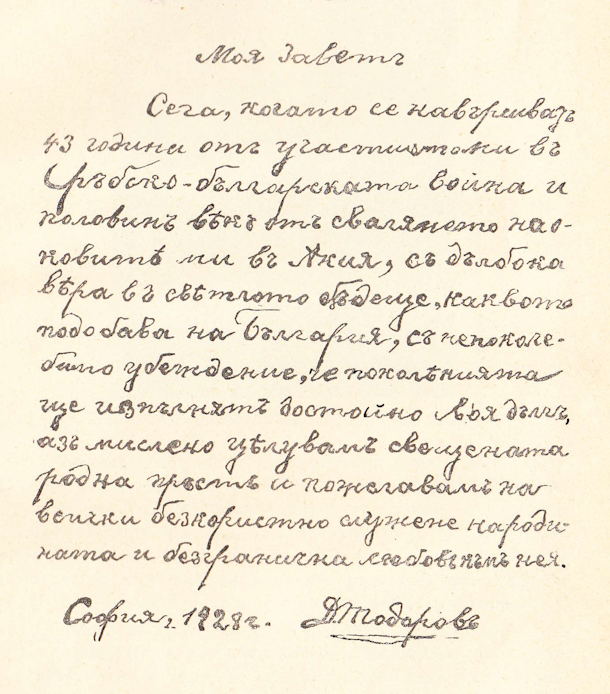 Моя Заветъ
Сега, когато се навършиватъ
43 години отъ участието ми въ
Сръбско-българската война и
половинъ вѣкъ отъ свалянето на о-
ковитѣ ми въ Акия, съ дълбока
вѣра въ свѣтлото бѫдеще, каквото
подобава на България, съ непоколе-
бимо убеждение, че поколѣнията
ще изпълнятъ достойно своя дългъ,
азъ мислено цѣлувамъ свещената
родна пръсть и пожелавамъ на
всички безкористно служене народи-
ната и безгранична любовь къмъ нея.
София, 1928 г. ДТодоровъ